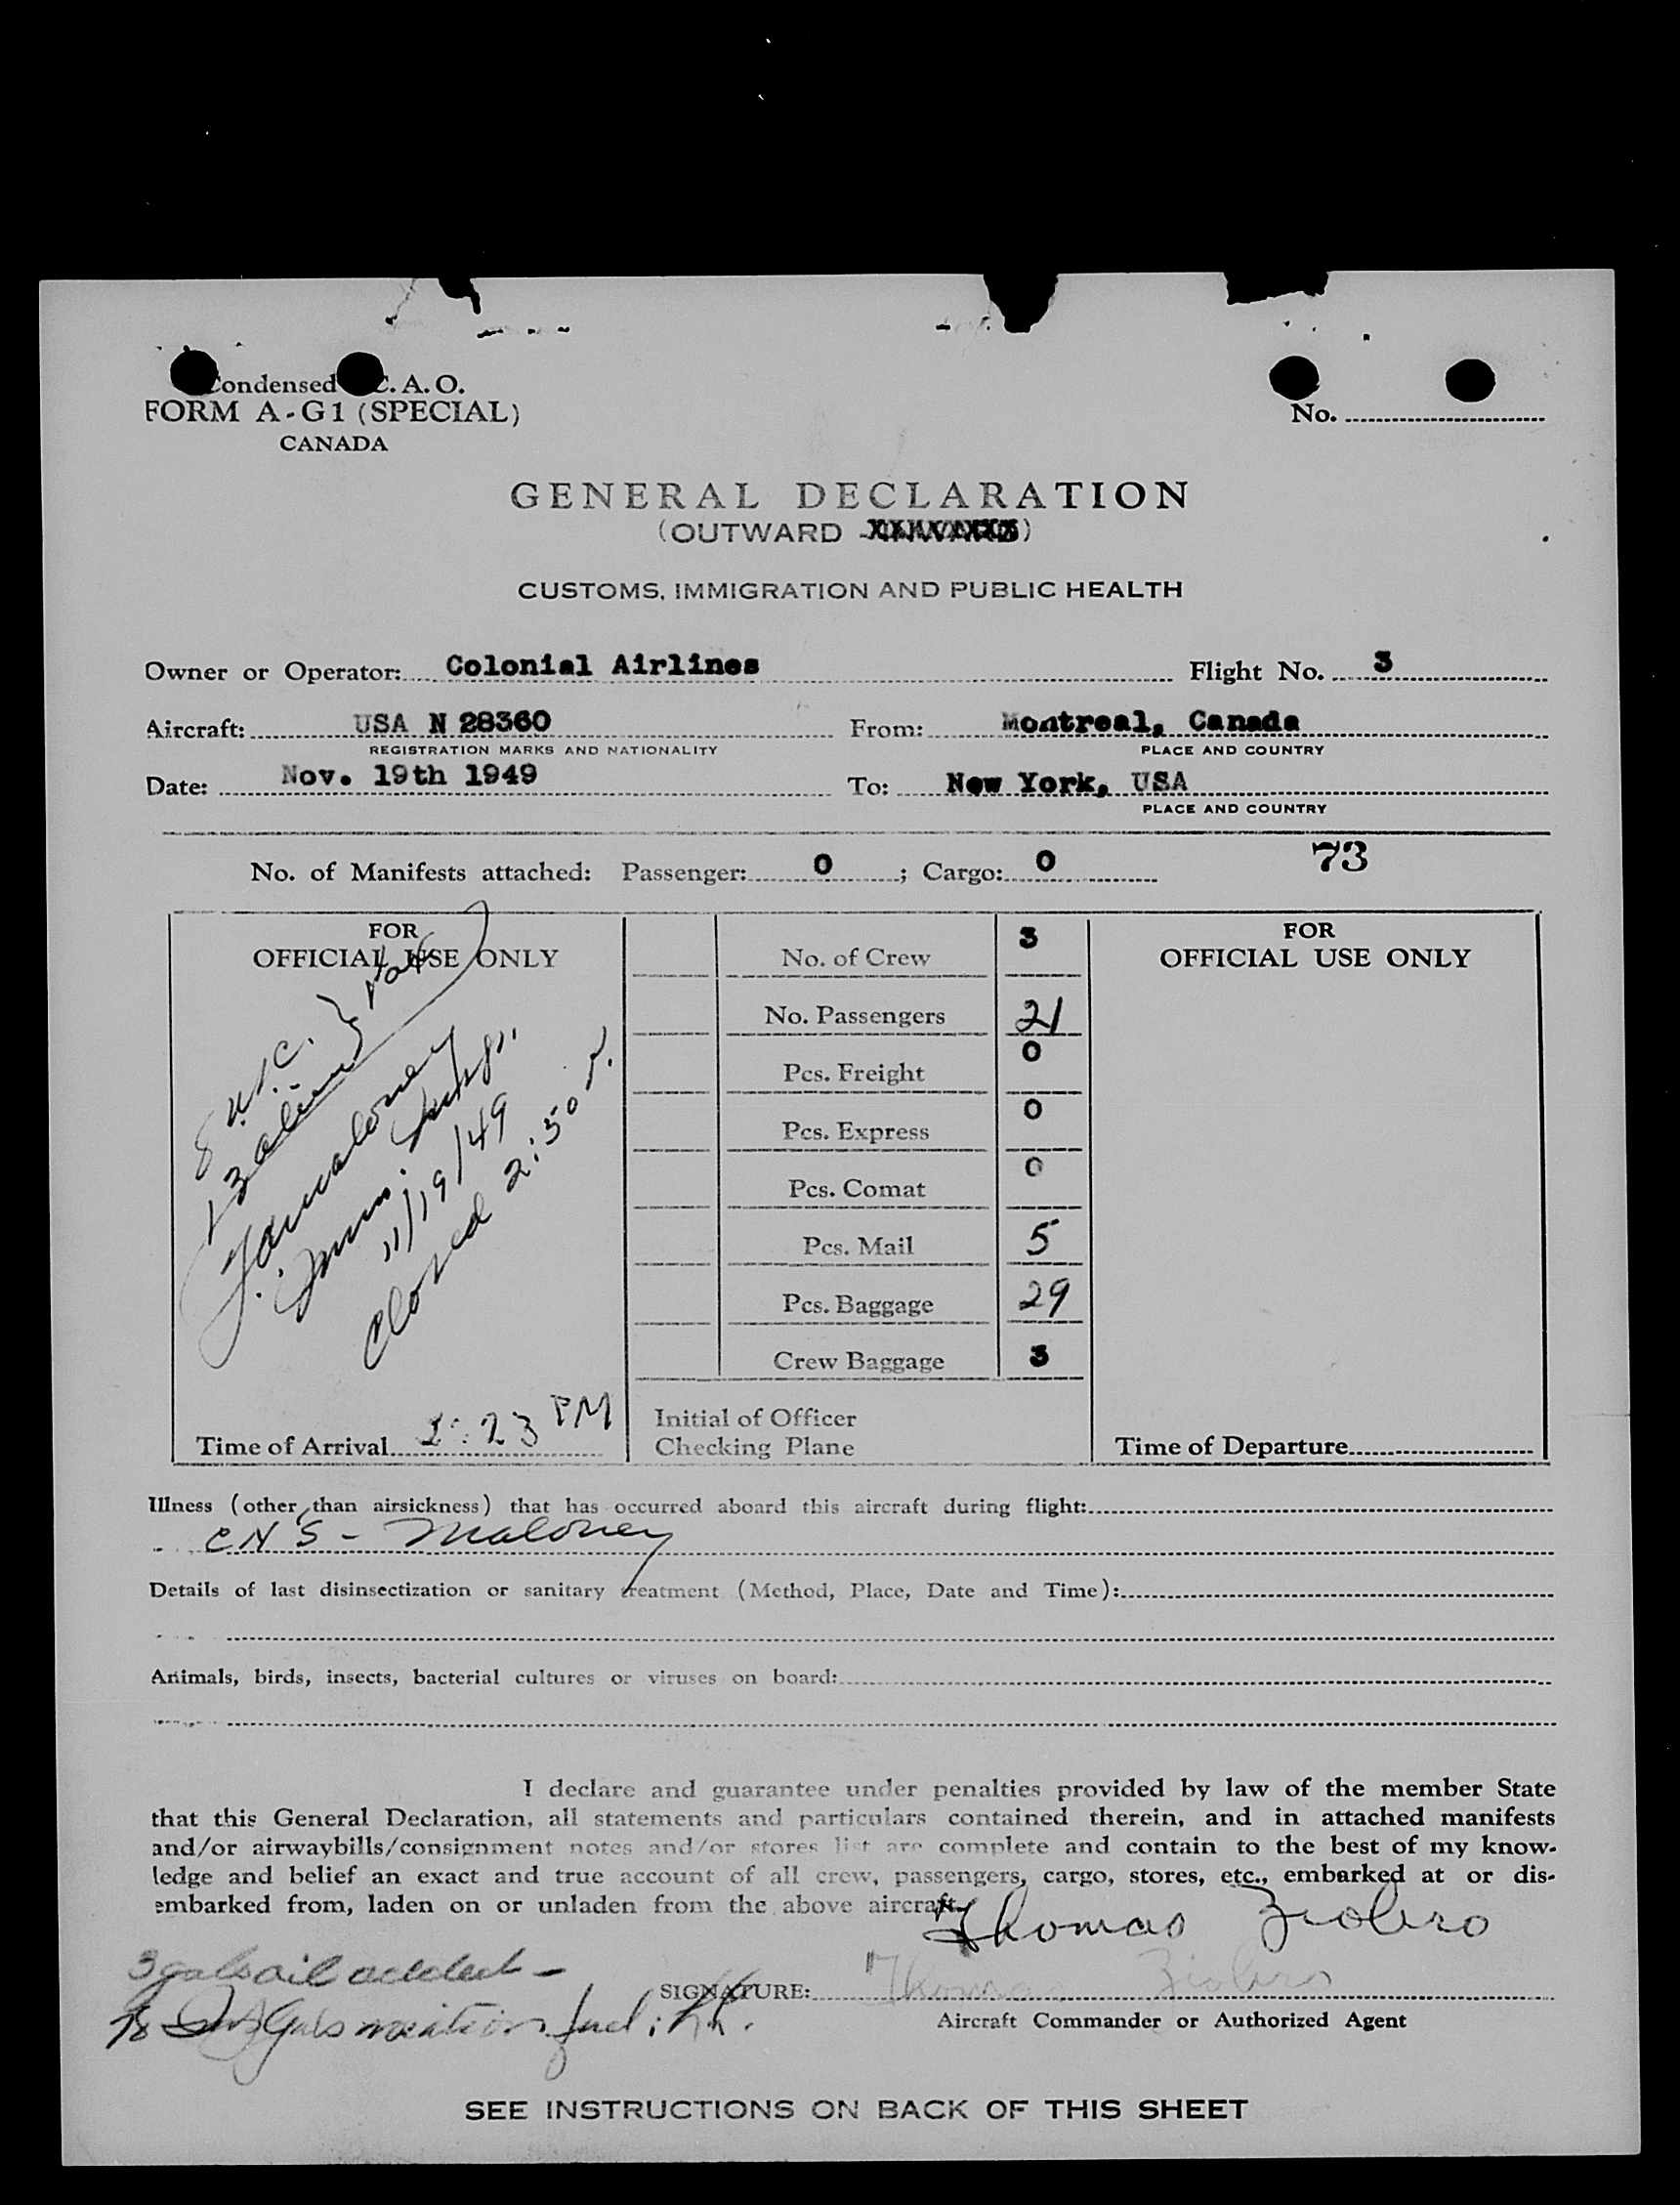 Condensed I.C.A.O.
FORM A-G1 (SPECIAL)
CANADA
No.
GENERAL DECLARATION
(OUTWARD -XXXXXXX)
CUSTOMS, IMMIGRATION AND PUBLIC HEALTH
Owner or Operator: Colonial Airlines Flight No. 3
Aircraft: USA N 28360 From: Montreal, Canada
REGISTRATION MARKS AND NATIONALITY PLACE AND COUNTRY
Date: Nov. 19th 1949 To: New York, USA
PLACE AND COUNTRY
73
No. of Manifests attached: Passenger: 0 ; Cargo: 0
FOR
OFFICIAL USE ONLY
8 U.S.C.
13 aliens
Maloney
Immi.
11/19/49
Closed 2:50 P.
Time of Arrival 2:23 PM
No. of Crew 3
No. Passengers 21
Pcs. Freight 0
Pcs. Express 0
Pcs. Comat 0
Pcs. Mail 5
Pcs. Baggage 29
Crew Baggage 3
Initial of Officer
Checking Plane
FOR
OFFICIAL USE ONLY
Time of Departure
Illness (other than airsickness) that has occurred aboard this aircraft during flight:
CNS - Maloney
Details of last disinsectization or sanitary treatment (Method, Place, Date and Time):
Animals, birds, insects, bacterial cultures or viruses on board:
I declare and guarantee under penalties provided by law of the member State
that this General Declaration, all statements and particulars contained therein, and in attached manifests
and/or airwaybills/consignment notes and/or stores list are complete and contain to the best of my know-
ledge and belief an exact and true account of all crew, passengers, cargo, stores, etc., embarked at or dis-
embarked from, laden on or unladen from the above aircraft.
Thomas Ziobro
3 gals oil added -
SIGNATURE: Thomas Ziobro
Gals aviation fuel
Aircraft Commander or Authorized Agent
SEE INSTRUCTIONS ON BACK OF THIS SHEET